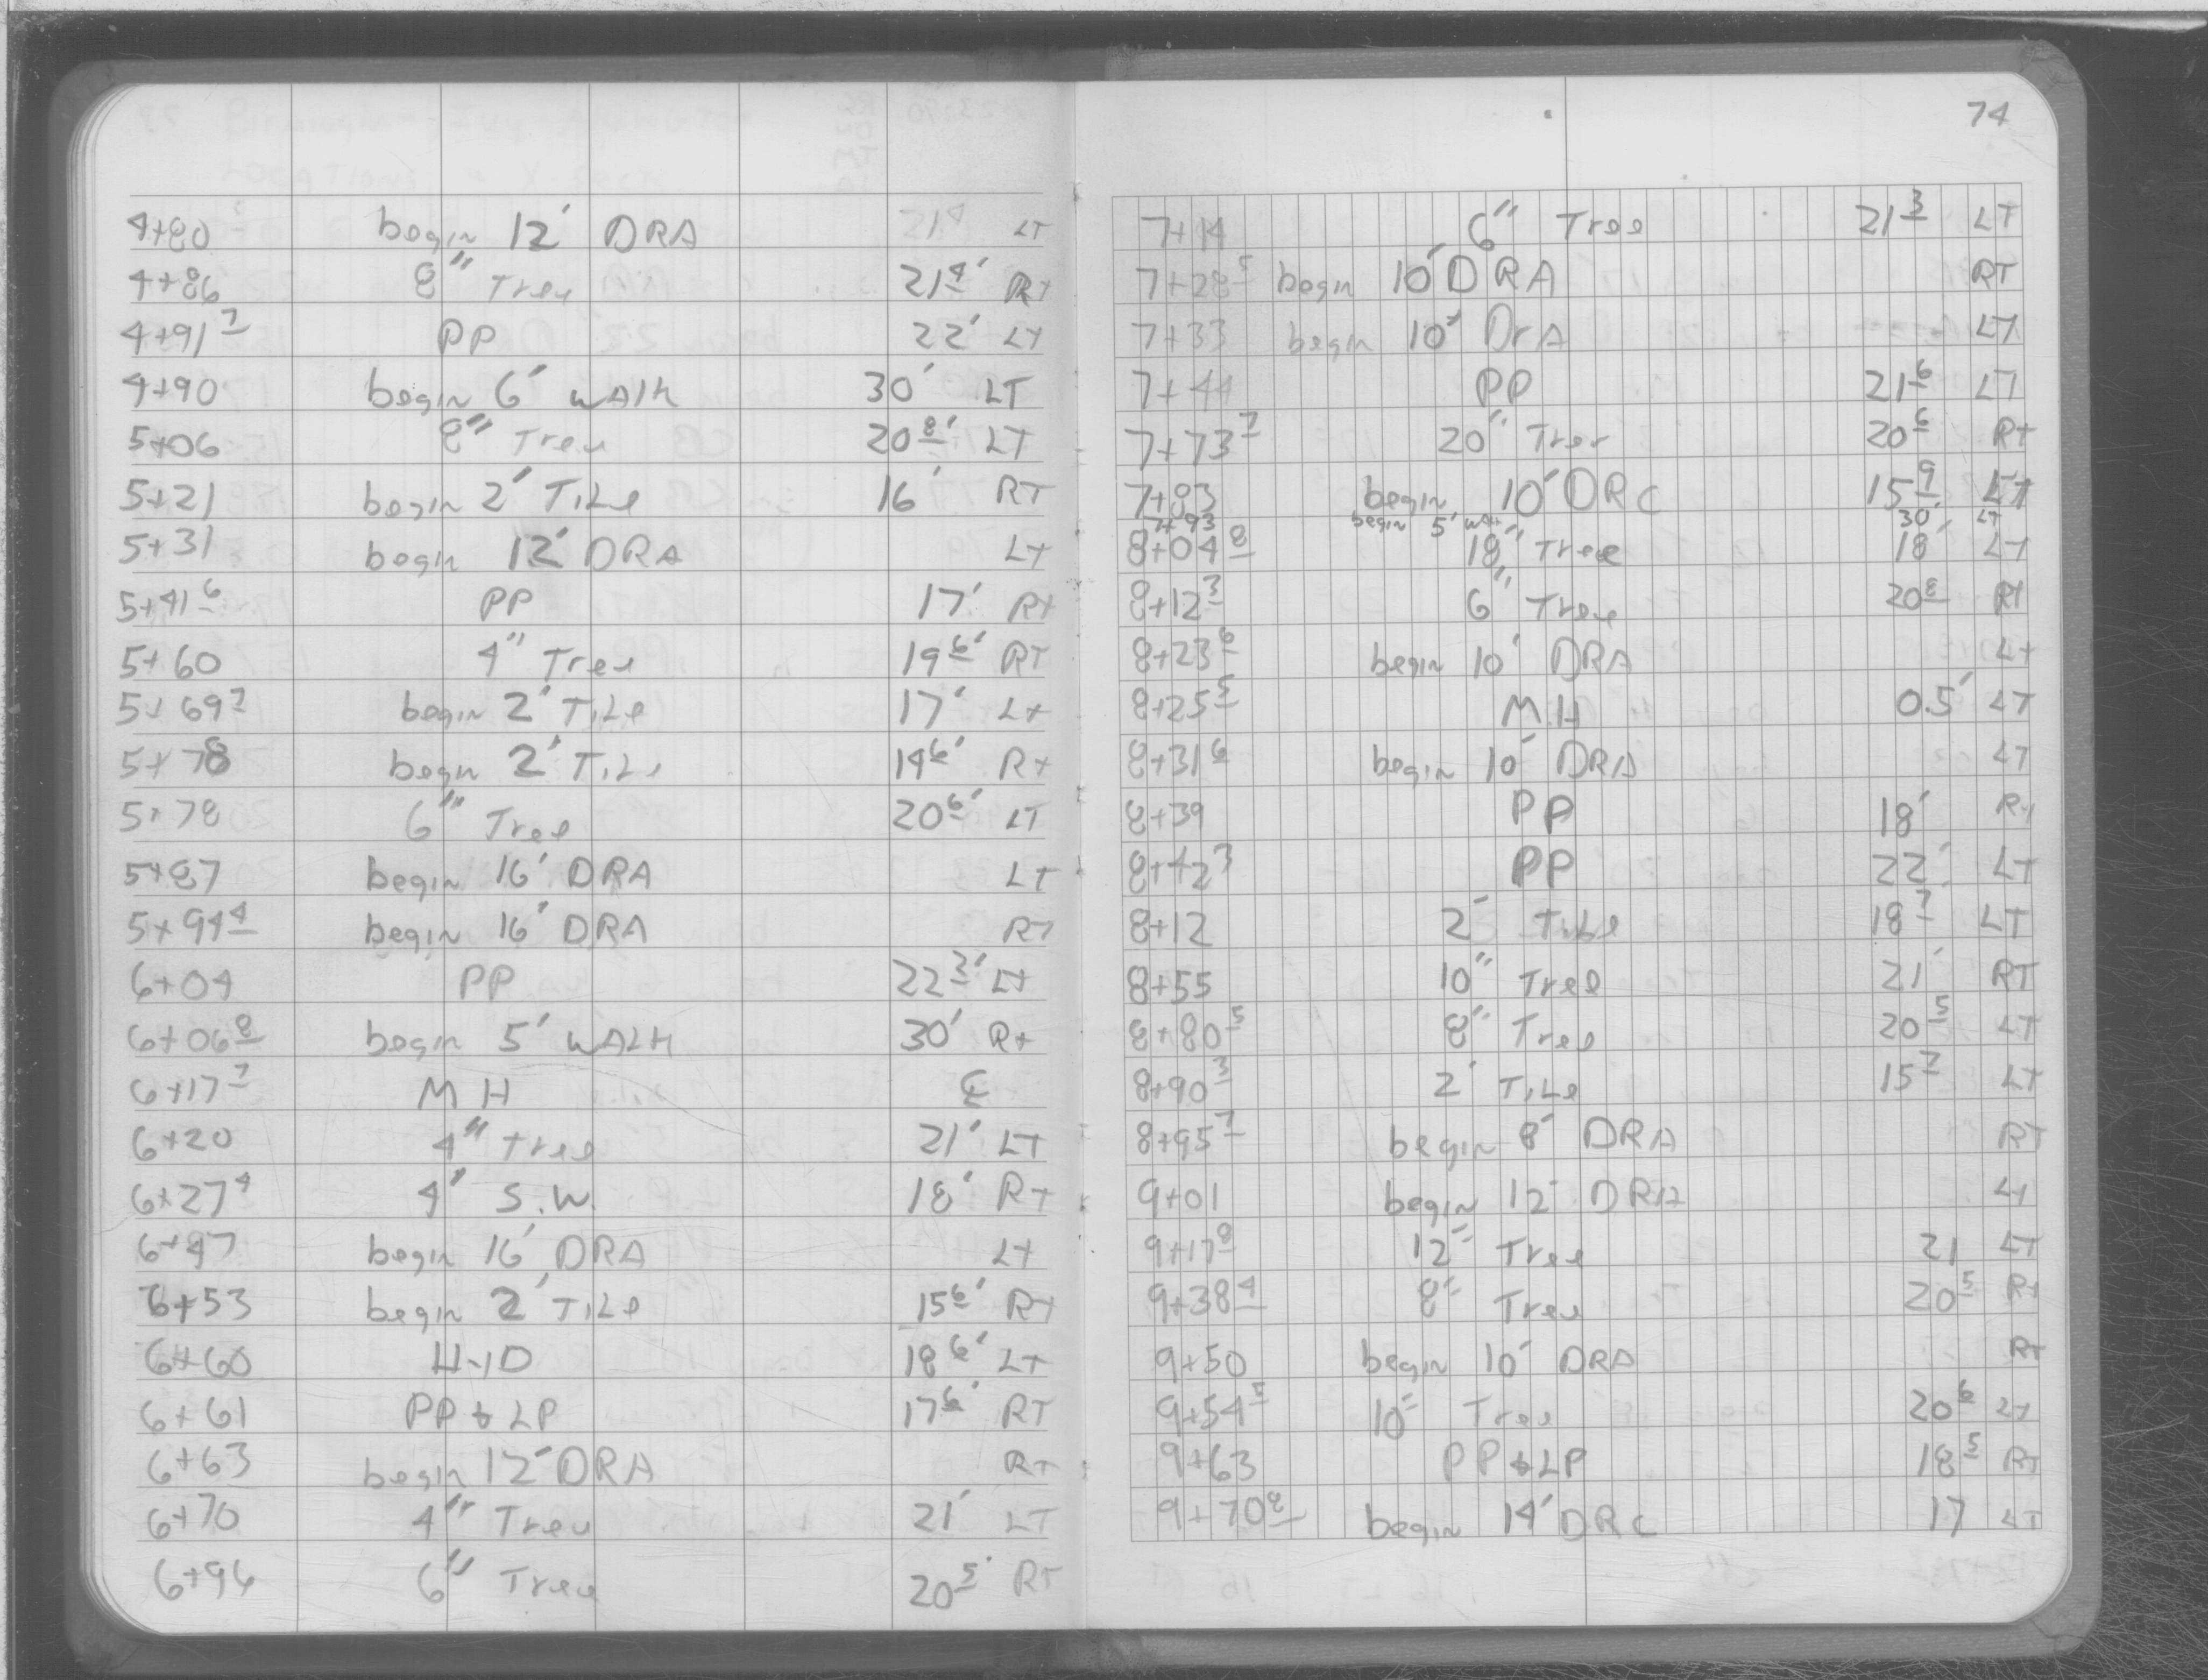 4+80 begin 12' DRA 21⁴ LT
4+86 8" Tree 21⁴' Rt
4+91⁷ PP 22' Lt
4+90 begin 6' WALK 30' LT
5+06 8" Tree 20⁸' LT
5+21 begin 2' TiLe 16' RT
5+31 begin 12' DRA Lt
5+41⁶ PP 17' Rt
5+60 4" Tree 19⁶' RT
5+69⁷ begin 2' TiLe 17' Lt
5+78 begin 2' TiLe 14⁶' Rt
5+78 6" Tree 20⁶' LT
5+87 begin 16' DRA LT
5+94⁴ begin 16' DRA RT
6+04 PP 22³' Lt
6+06⁸ begin 5' WALK 30' Rt
6+17⁷ MH ℄
6+20 4" Tree 21' LT
6+27⁴ 4' S.W. 18' Rt
6+47 begin 16' DRA Lt
6+53 begin 2' TiLe 15⁶' Rt
6+60 HYD 18⁶' Lt
6+61 PP & LP 17⁶' RT
6+63 begin 12' DRA Rt
6+70 4" Tree 21' LT
6+96 6" Tree 20⁵' RT
74
7+14 6" Tree 21³ LT
7+28⁵ begin 10' DRA RT
7+33 begin 10' DrA LT
7+44 PP 21⁶ LT
7+73⁷ 20" Tree 20⁶ Rt
7+83 begin 10' DRC 15⁹ LT
7+93 begin 5' WAK 30' LT
8+04⁸ 18" Tree 18' LT
8+12³ 6" Tree 20⁸ RT
8+23⁶ begin 10' DRA Lt
8+25⁵ MH 0.5' LT
8+31⁶ begin 10' DRA LT
8+39 PP 18' Rt
8+42³ PP 22' LT
8+12 2' TiLe 18⁷ LT
8+55 10" Tree 21' RT
8+80⁵ 8" Tree 20⁵ LT
8+90³ 2' TiLe 15⁷ LT
8+95⁷ begin 8' DRA RT
9+01 begin 12' DRA Lt
9+17⁸ 12" Tree 21 LT
9+38⁴ 8" Tree 20⁵ Rt
9+50 begin 10' DRA Rt
9+54⁵ 10" Tree 20⁶ Lt
9+63 PP & LP 18⁵ Rt
9+70⁸ begin 14' DRC 17 LT